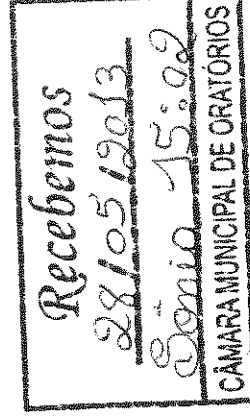 Recebemos
28/05/2013
Sônia 15:02
CÂMARA MUNICIPAL DE ORATÓRIOS